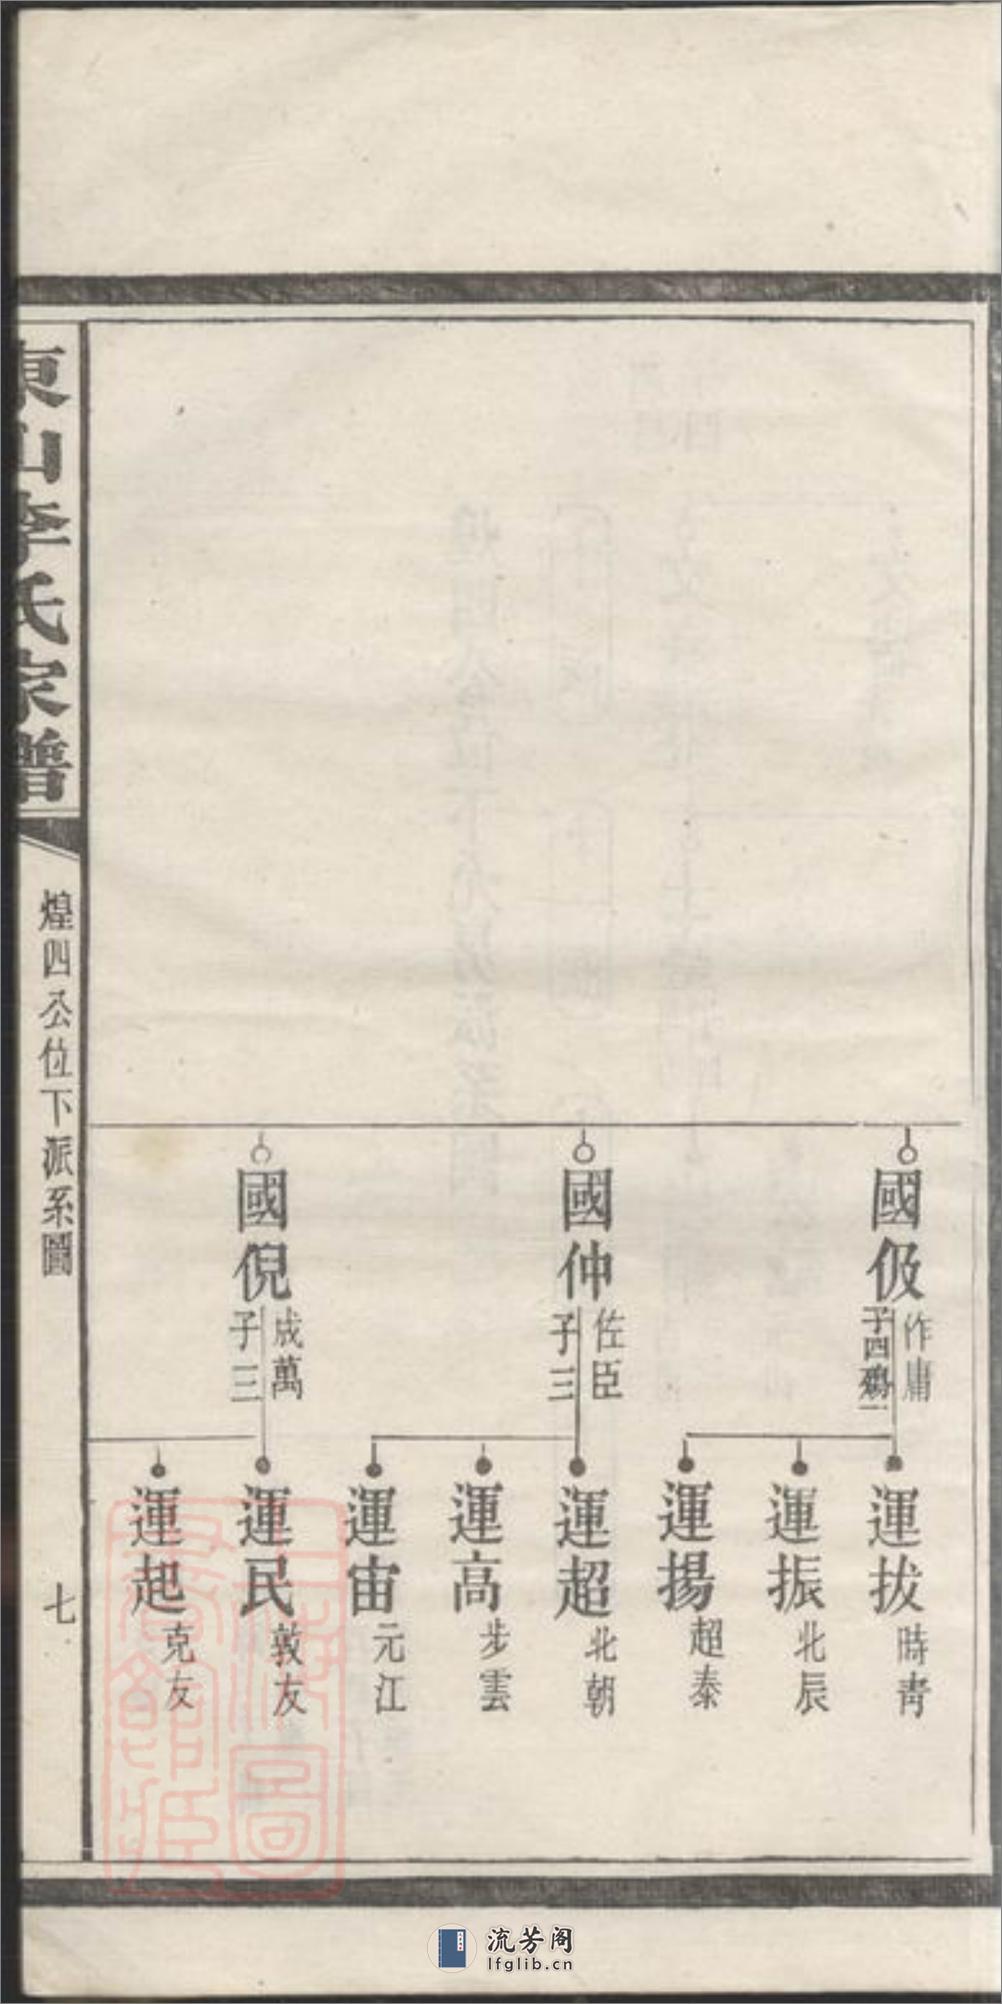 國伋
作庸
子四殤一
運拔
時青
運振
北辰
運揚
超泰
國仲
佐臣
子三
運超
北朝
運高
步雲
運宙
元江
國倪
成萬
子三
運民
敦友
運起
克友
東山李氏宗譜
煌四公位下派系圖
七
上海圖書館藏
流芳阁
lfglib.cn